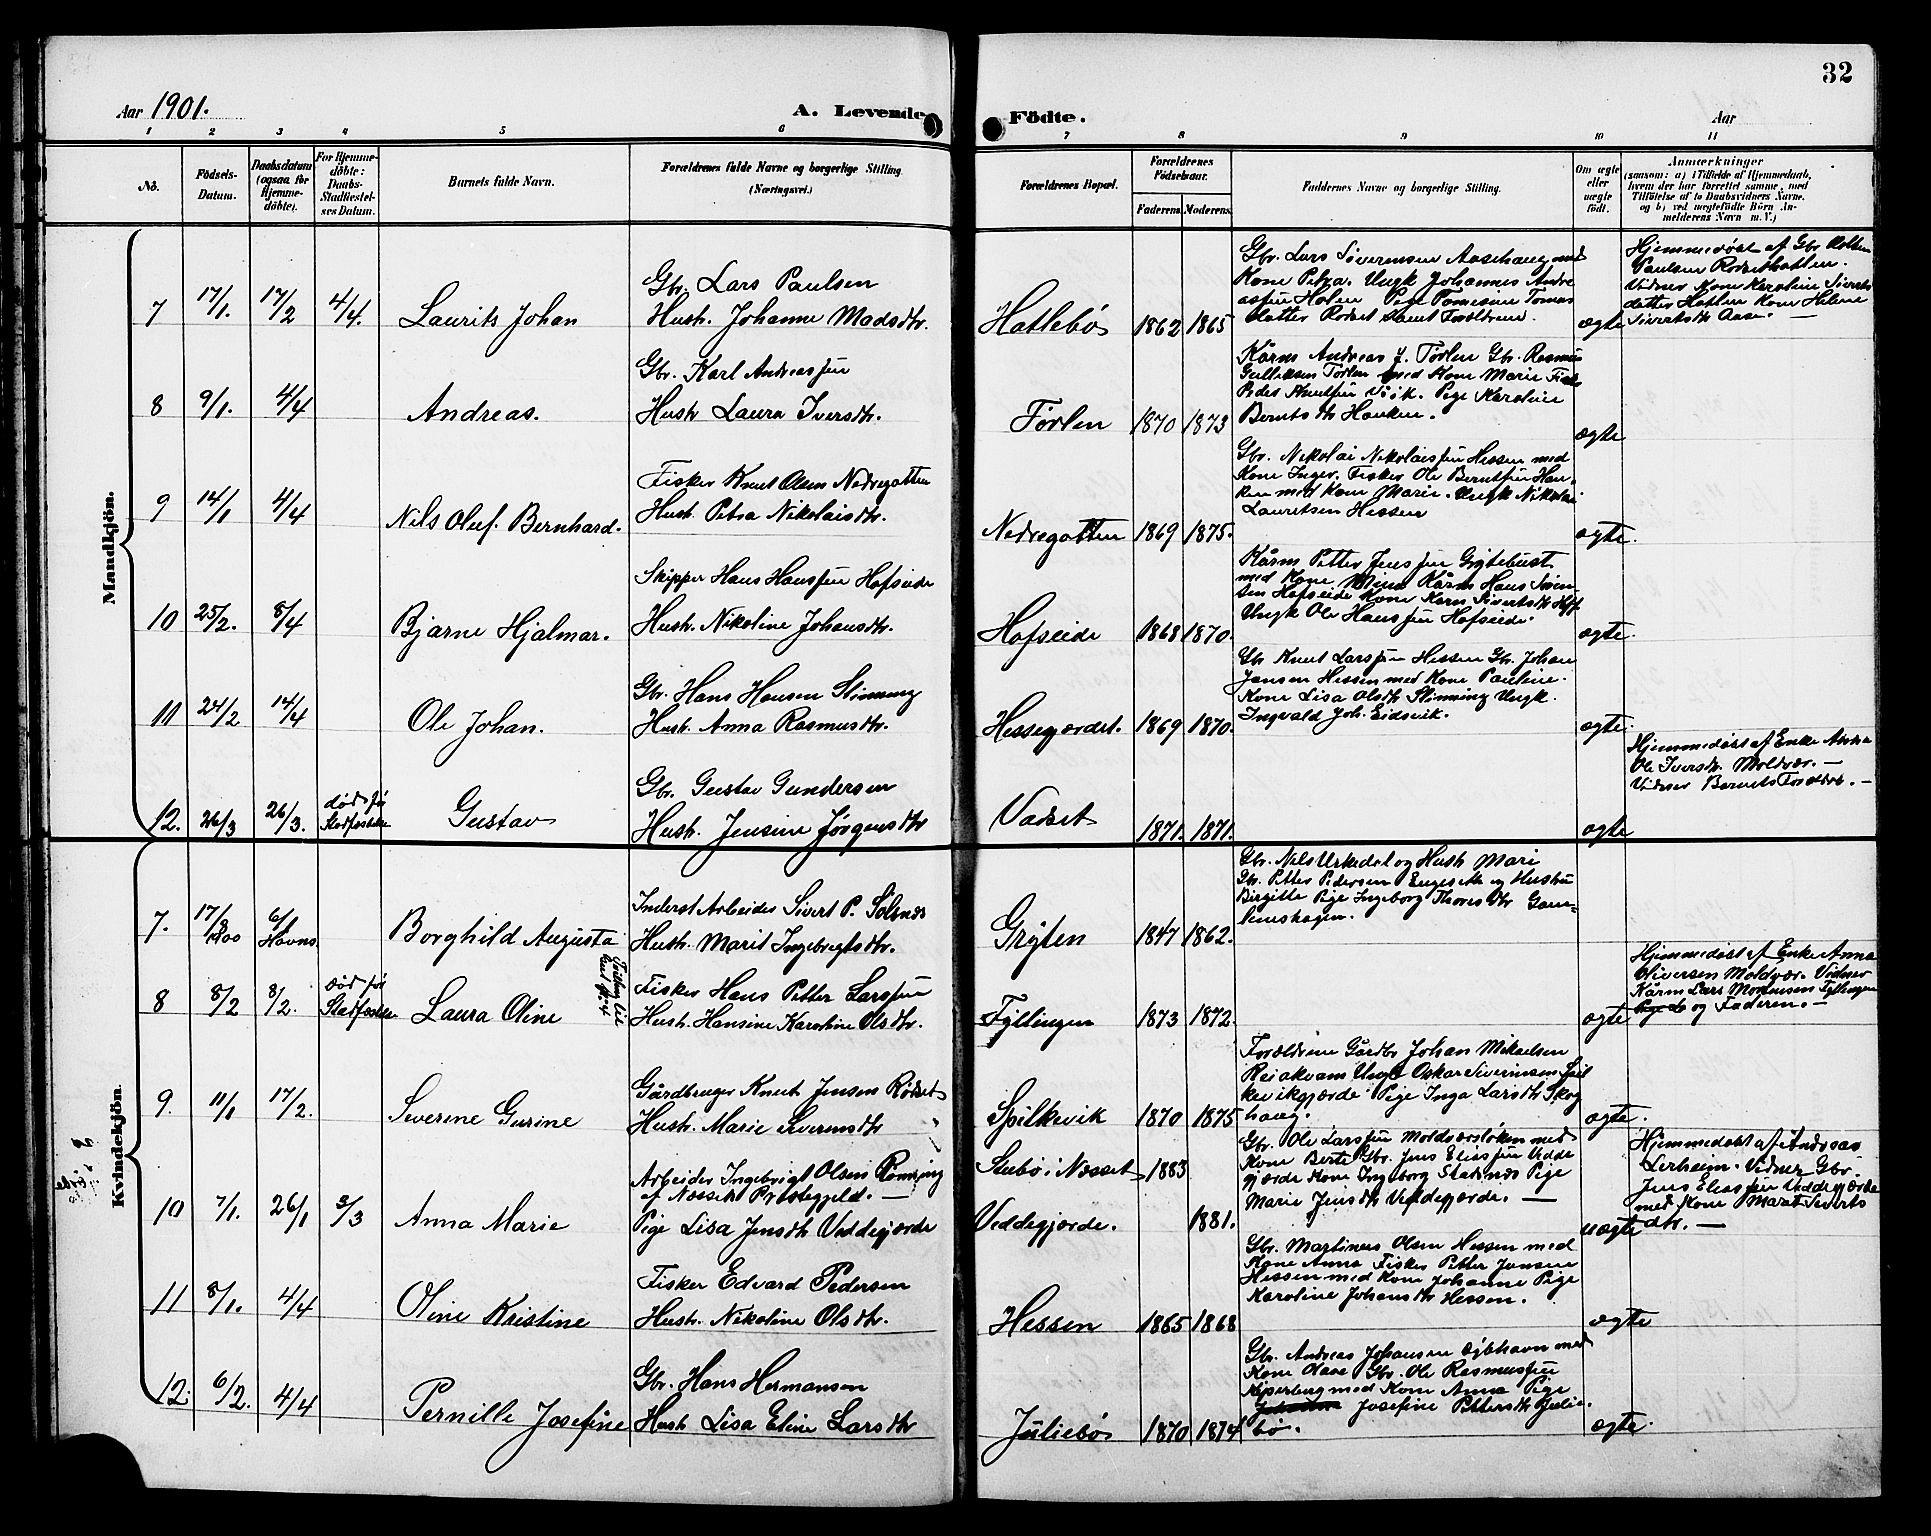 32
Aar 1901.
A. Levende Födte.
Aar
1 2 3 4 5 6 7 8 9 10 11
No.
Födsels-
Datum.
Daabsdatum
(ogsaa for
Hjemme-
döbte).
For Hjemme-
döbte:
Daabs-
Stadfæstel-
ses Datum.
Barnets fulde Navn.
Forældrenes fulde Navne og borgerlige Stilling
(Næringsvei.)
Forældrenes Bopæl.
Forældrenes
Födselsaar.
Faderens. Moderens.
Faddernes Navne og borgerlige Stilling.
Om ægte
eller
uægte
født.
Anmærkninger
(saasom: a) i Tilfælde af Hjemmedaab,
hvem der har forrettet samme, med
Tilföielse af to Daabsvidners Navne.
og b) ved uægtefödte Börn An-
melderens Navn m. V.)
Mandkjön.
7 17/1. 17/2 4/4. Laurits Johan
Gbr. Lars Paulsen
Hustr. Johanne Madsdtr.
Hatlebø 1862 1865
Gbr. Lars Severinsen Aasehaug med
Kone Petra. Ungk Johannes Andre
assen Holen Pige Tomesine Tomas
datter Rodset samt Forældrene.
ægte
Hjemmedøbt af Gbr
Paulsen Rodsethatlen.
Vidner Kone Karoline Siverts
datter Hatlen Kone Helene
Sivertsdtr Aase. —
8 9/1. 4/4 Andreas.
Gbr. Karl Andreassen
Hustr Laura Iversdtr.
Tørlen 1870 1873
Kårm Andreas J. Tørlen Gbr. Rasmus
Gulliksen Tørlen med Kone Marie
Peder Knutsen Vik. Pige Karoline
Berntsdtr Hauken.
ægte
9 14/1 4/4 Nils Oluf. Bernhard.
Fisker Knut Olsen Nedregotten
Hustr. Petra Nikolaisdtr.
Nedregotten 1869 1875.
Gbr. Nikolai Nikolaissen Hessen med
Kone Inger. Fisker Ole Berntsen Hau-
ken med Kone Marie. Ungk Nikolai
Lauritsen Hessen
ægte.
10 25/2. 8/4 Bjarne Hjalmar.
Skipper Hans Hanssen Hofseide
Hustr. Nikoline Johansdtr.
Hofseide 1868 1870.
Kårm Petter Jenssen Grytebust
med Kone Kårm Hans
sen Hofseide Kone Karn Sivertsdtr Hoff.
Ungk Ole Hanssen Hofseide.
ægte.
11 24/2 14/4 Ole Johan.
Gbr. Hans Hansen Slinning
Hustr. Anna Rasmusdtr.
Hessegjerdet. 1869 1870.
Gbr Knut Larssen Hessen Gbr. Johan
Jensen Hessen med Kone Pauline.
Kone Lisa Olsdtr Slinning Ungk.
Ingvald Joh. Eidsvik.
ægte.
12. 26/3 26/3. død før
Stadfæstelse
Gustav
Gbr. Gustav Gundersen
Hustr. Jensine Jørgensdtr
Vadset 1871. 1871.
ægte
Hjemmedøbt af Enke Anna
Ole Iversdtr. Moldvær. —
Vidner Barnets Forældre. —
Kvindekjön.
7. 17/9 1900 6/1 Havns.
Borghild Augusta
Inderst Arbeider Sivert P. Solsnes
Hustr. Marit Ingebrigtsdtr.
Gryten 1847 1862.
Gbr. Nils Urkedal og Hustr Mari
Gbr. Petter Pedersen Engeseth og Hustru
Birgitte Pige Ingeborg Thoresdtr Gam-
lemshagen.
8 8/2 8/2. død før
Stadfæstelse
Laura Oline
Fisker Hans Petter Larssen
Hustr. Hansine Karoline Olsdtr.
Fyllingen 1873 1872.
ægte
Hjemmedøbt af Enke Anna
Oliversen Moldvær. Vidner
Kårm Lars Mortensen Fyllingen
og Faderen. —
9. 11/1 17/2. Severine Gurine
Gårdbruger Knut Jensen Rødset
Hustr. Marie Severinsdtr
Spilkevik 1870 1875
Forældrene Gårdbr Johan Mikaelsen
Reiakvam Ungk Oskar Severinsen Spil
kevikgjærde Pige Inga Larsdtr Skog
haug.
ægte.
10 7/1. 26/1 3/3 Anna Marie
Arbeider Ingebrigt Olsen
af Næsset Præstegjeld. —
Pige Lisa Jensdtr Veddegjærde
Stubø i Næsset 1883
Veddegjerde. 1881.
Gbr. Ole Larssen Moldværsløken med
Kone Berte Gbr. Jens Eliassen Vedde
gjærde Kone Ingeborg Stadsnes Pige
Marie Jensdtr Veddegjærde. —
uægte
Hjemmedøbt af Andreas
Lerheim. Vidner Gbr.
Jens Eliassen Veddegjærde
med Kone Marat Siverts
dtr. —
11 8/1. 4/4 Oline Kristine
Fisker Edvard Pedersen
Hustr. Nikoline Olsdtr.
Hessen 1865 1868
Gbr. Martinus Olsen Hessen med
Kone Anna Fisker Petter Jensen
Hessen med Kone Johanne Pige
Karoline Johansdtr Hessen.
ægte
12. 6/2. 4/4 Pernille Josefine
Gbr. Hans Hermansen
Hustr Lisa Eline Larsdtr
Juliebø 1870 1874
Gbr. Andreas Johansen med
Kone Gbr. Ole Rasmussen
med Kone Anna Pige
Josefine Pettersdtr Julie-
bø.
ægte.